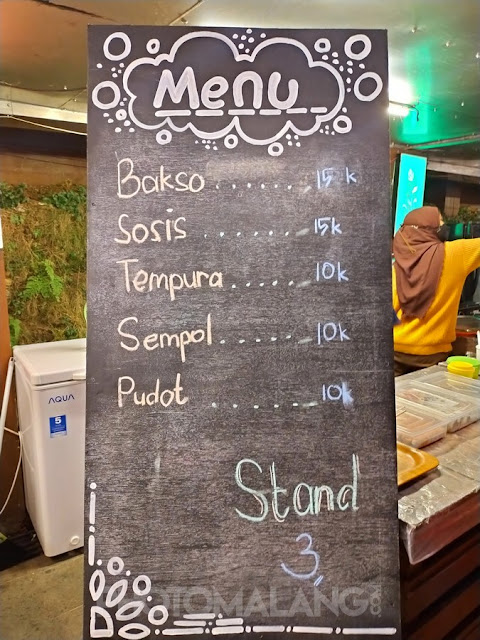 Menu
Bakso ....... 15k
Sosis ....... 15k
Tempura ...... 10k
Sempol ....... 10k
Pudot ...... 10k
Stand
3
AQUA
5